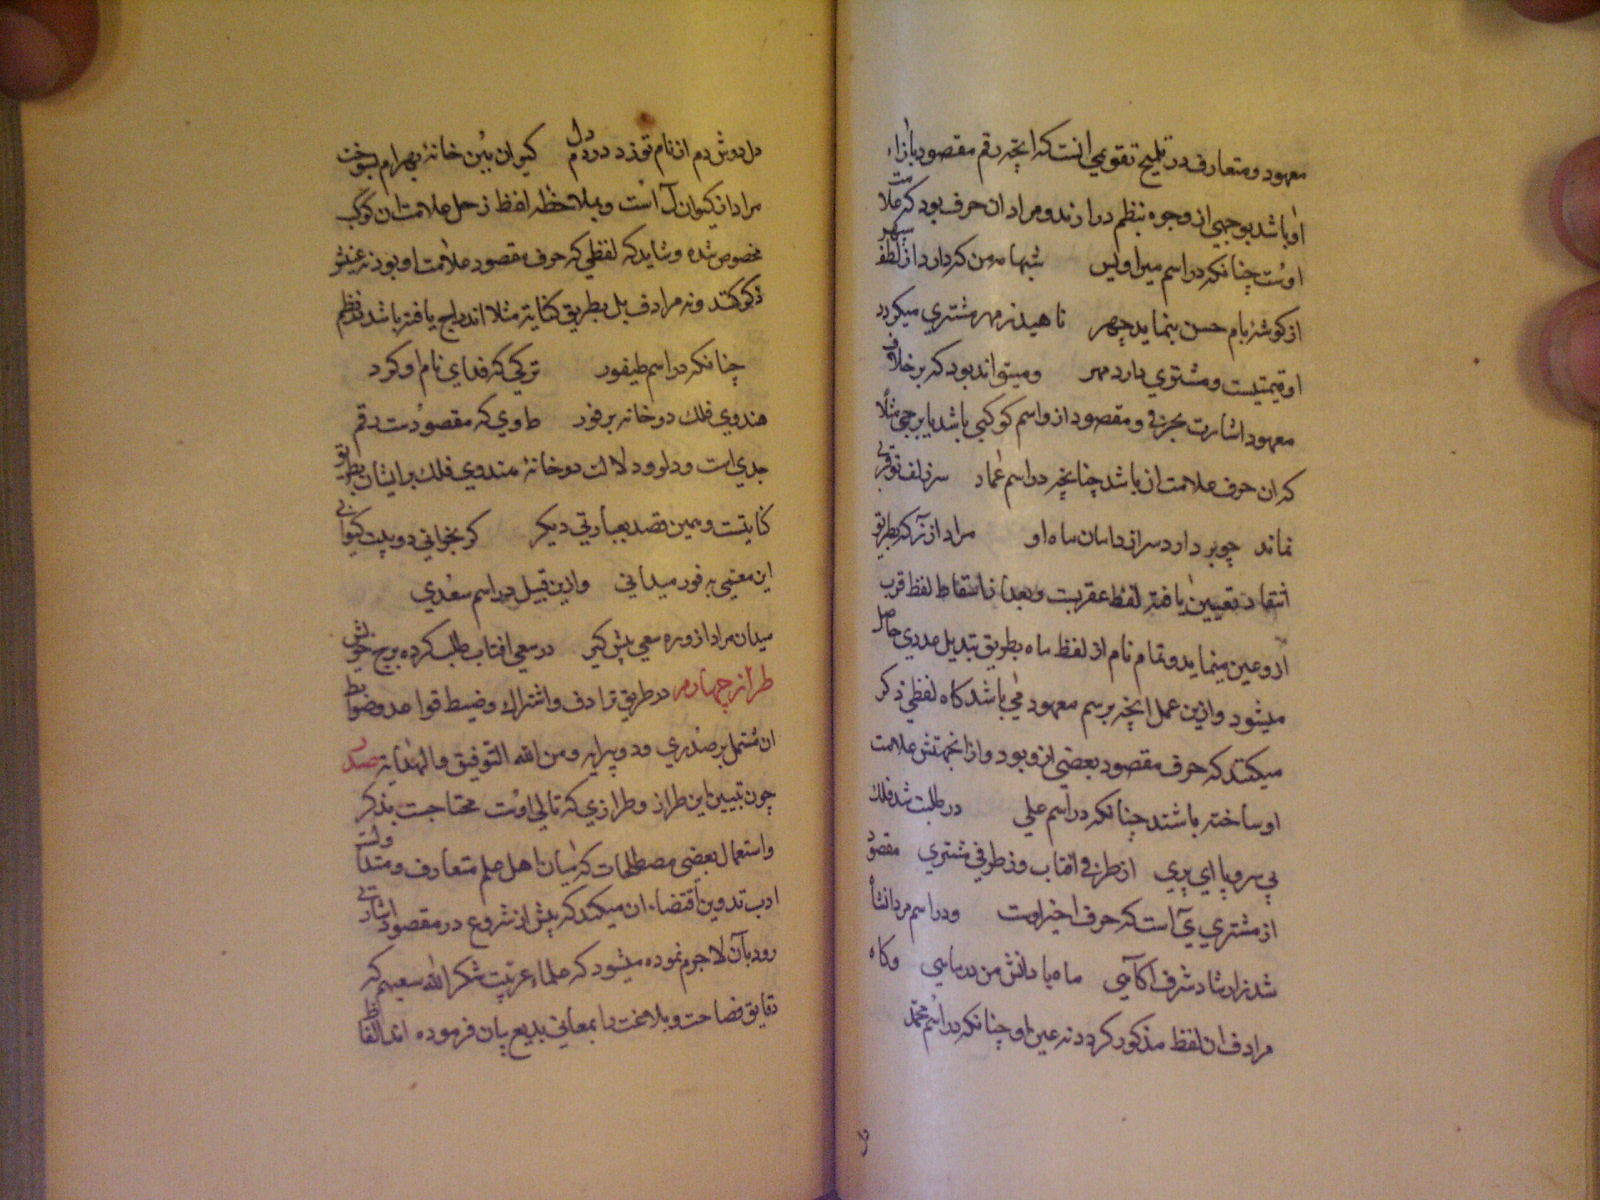 معهود و متعارف در تلمیح تقویمی انست که انچه رقم مقصود بازاء
او باشد بوجهی از وجوه بنظم در ارند و مراد ان حرف بود که علامت
اوست چنانکه در اسم میر اویس شبها مه من که دارد از لطف سپهر
از کوشهٔ بام حسن بنماید چهر ناهید ز مهر مشتری میکردد
او قیمتیست و مشتری دارد مهر و میتواند بود که بر خلاف
معهود اشارت بحرفی و مقصود از و اسم کوکبی باشد یا برجی مثلا
که ان حرف علامت ان باشد چنانچه در اسم عماد سر زلف تو قربی
نماند چو بردارد سر از دامان ماه او مراد از که بطریق
انتقاد تعیین یافته لفظ عقربست و بعد از اسقاط لفظ قرب
ازو عین مینماید و تمام نام از لفظ ماه بطریق تبدیل عددی حاصل
میشود و ازین عمل انچه برسم معهود می باشد کاه لفظی ذکر
میکنند که حرف مقصود بعضی ازو بود و از انجهتش علامت
او ساخته باشند چنانکه در اسم علی در طلبت شد فلک
بی سر و پا ای پری از طرفی افتاب وز طرفی مشتری مقصود
از مشتری یی است که حرف اخیر اوست و در اسم مردانشاه
شد نزاد شاد شرف اکآهی ماه با دانش من و کاه
مرادف ان لفظ مذکور کردد نه عین او چنانکه در اسم محمد
دل دوش دم از نام تو زد در دم کیوان بین خانهٔ بهرام بسوخت
مراد از کیوان ل است و بملاحظه لفظ زحل علامت ان کوکب
مخصوص شده و شاید که لفظی که حرف مقصود علامت او بود نه عینش
ذکر کنند و نه مرادف بل بطریق کنایة مثلا اندراج یافته باشد در نظم
چنانکه در اسم طیفور ترکی که فدای نام او کرد
هندوی فلک دو خانه بر فور طا وی که مقصودست رقم
جدی است و دلو و دلالت دو خانهٔ هندوی فلک بر ایشان بطریق
کنایتست و همین قصد بعبارتی دیکر کر بخوانی دو بیت کیوانی
این معنی به فور میدانی و ازین قبیل در اسم سعدی
میدان مراد از و ره سعی پیش کیر در سعی افتاب طلب کرده برج خویش
طراز چهارم در طریق ترادف و اشتراک و ضبط قواعد و ضوابط
ان مشتمل بر صدری و دو پیرایه و من الله التوفیق و الهدایة صدر
چون تبیین این طراز و طرازی که تالی اوست محتاجست بذکر
و استعمال بعضی مصطلحات که میان اهل علم متعارف و متداولست
ادب تدوین اقتضاء ان میکند که پیش از شروع در مقصود اشارتی
رود بان لاجرم نموده میشود که علماء عربیت شکر الله سعیهم که
دقایق فصاحت و بلاغت را بمعانی بدیع بیان فرموده اند الفاظ